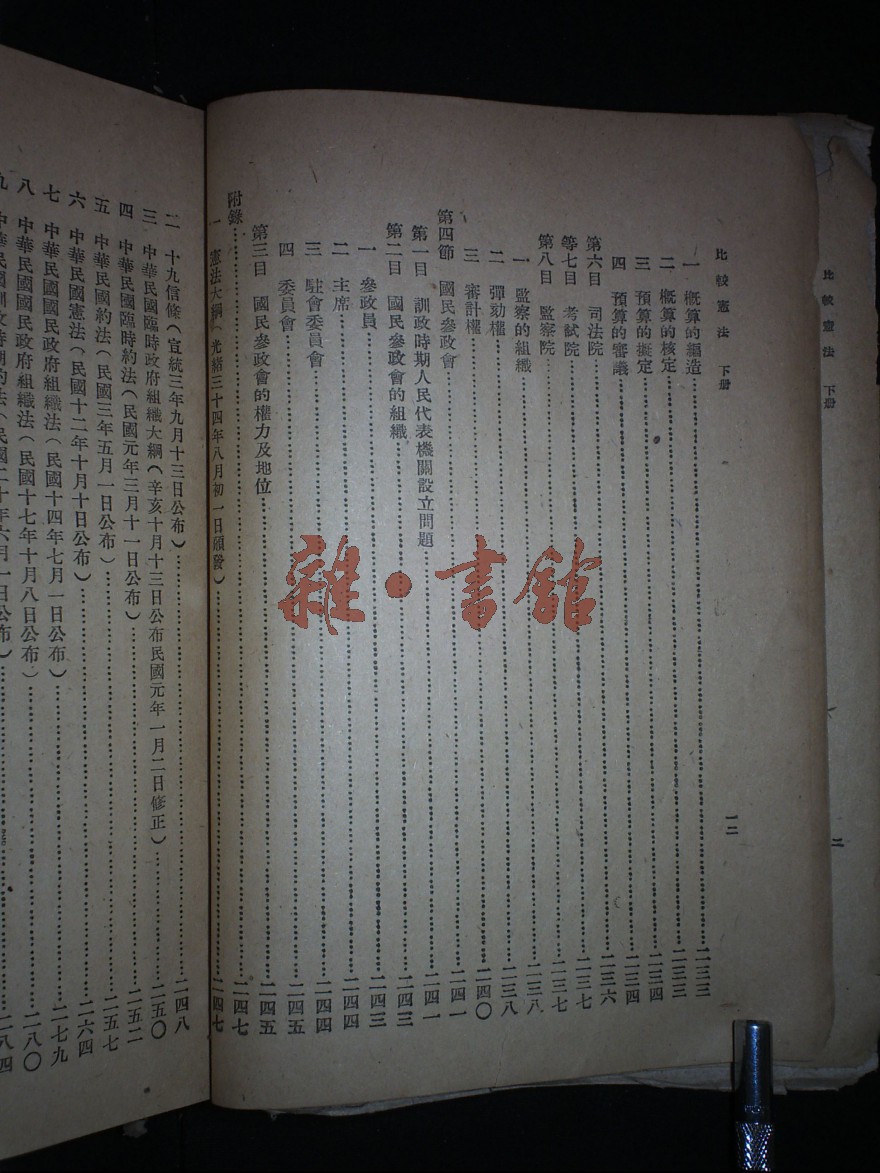 比較憲法 下册
二
比較憲法 下册 一二
一 概算的編造……二三三
二 概算的核定……二三三
三 預算的擬定……二三四
四 預算的審議……二三四
第六目 司法院……二三六
等七目 考試院……二三七
第八目 監察院……二三七
一 監察的組織……二三八
二 彈劾權……二三八
三 審計權……二四〇
第四節 國民參政會……二四一
第一目 訓政時期人民代表機關設立問題……二四一
第二目 國民參政會的組織……二四三
一 參政員……二四三
二 主席……二四四
三 駐會委員會……二四四
四 委員會……二四五
第三目 國民參政會的權力及地位……二四五
附錄……二四七
一 憲法大綱(光緒三十四年八月初一日頒發)……二四七
二 十九信條(宣統三年九月十三日公布)……二四八
三 中華民國臨時政府組織大綱(辛亥十月十三日公布民國元年一月二日修正)……二五〇
四 中華民國臨時約法(民國元年三月十一日公布)……二五二
五 中華民國約法(民國三年五月一日公布)……二五七
六 中華民國憲法(民國十二年十月十日公布)……二六四
七 中華民國國民政府組織法(民國十四年七月一日公布)……二七九
八 中華民國國民政府組織法(民國十七年十月八日公布)……二八〇
九 中華民國訓政時期約法(民國二十年六月一日公布)……二八四
雜·書館